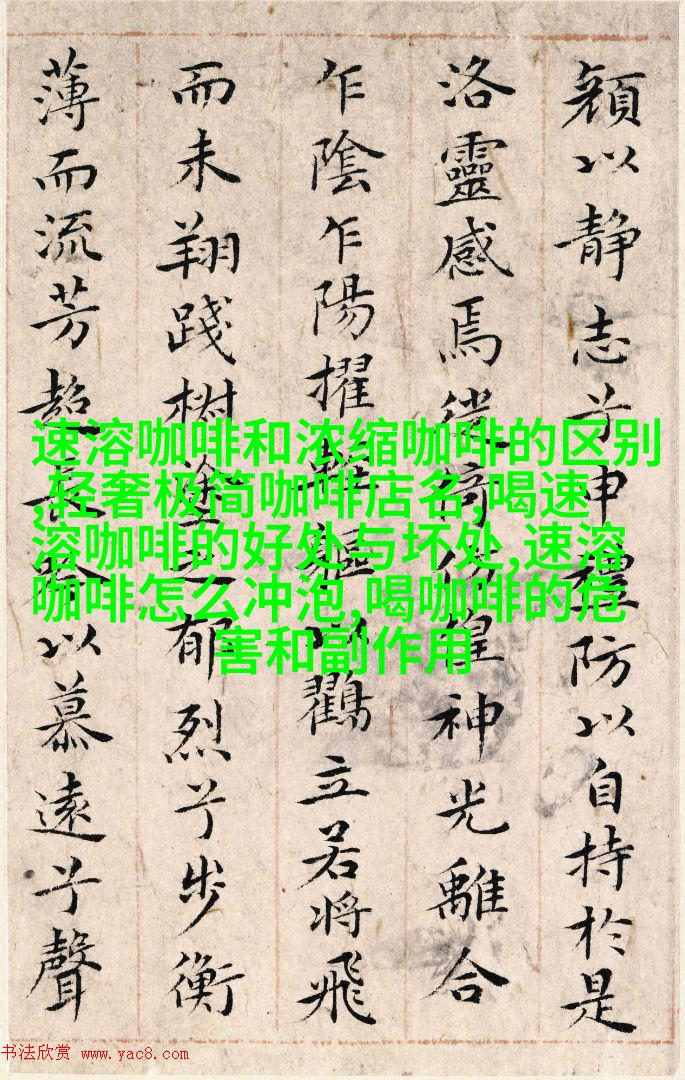 顔以静志兮申禮防以自持於是
洛靈感焉徙倚徨神光離合
乍陰乍陽擢軀以鸖立若將飛
而未翔踐樹塗之郁烈兮步衡
薄而流芳超長吟以慕遠兮聲
速溶咖啡和浓缩咖啡的区别
,轻奢极简咖啡店名,喝速
溶咖啡的好处与坏处,速溶
咖啡怎么冲泡,喝咖啡的危
害和副作用
书法欣赏 www.yac8.com